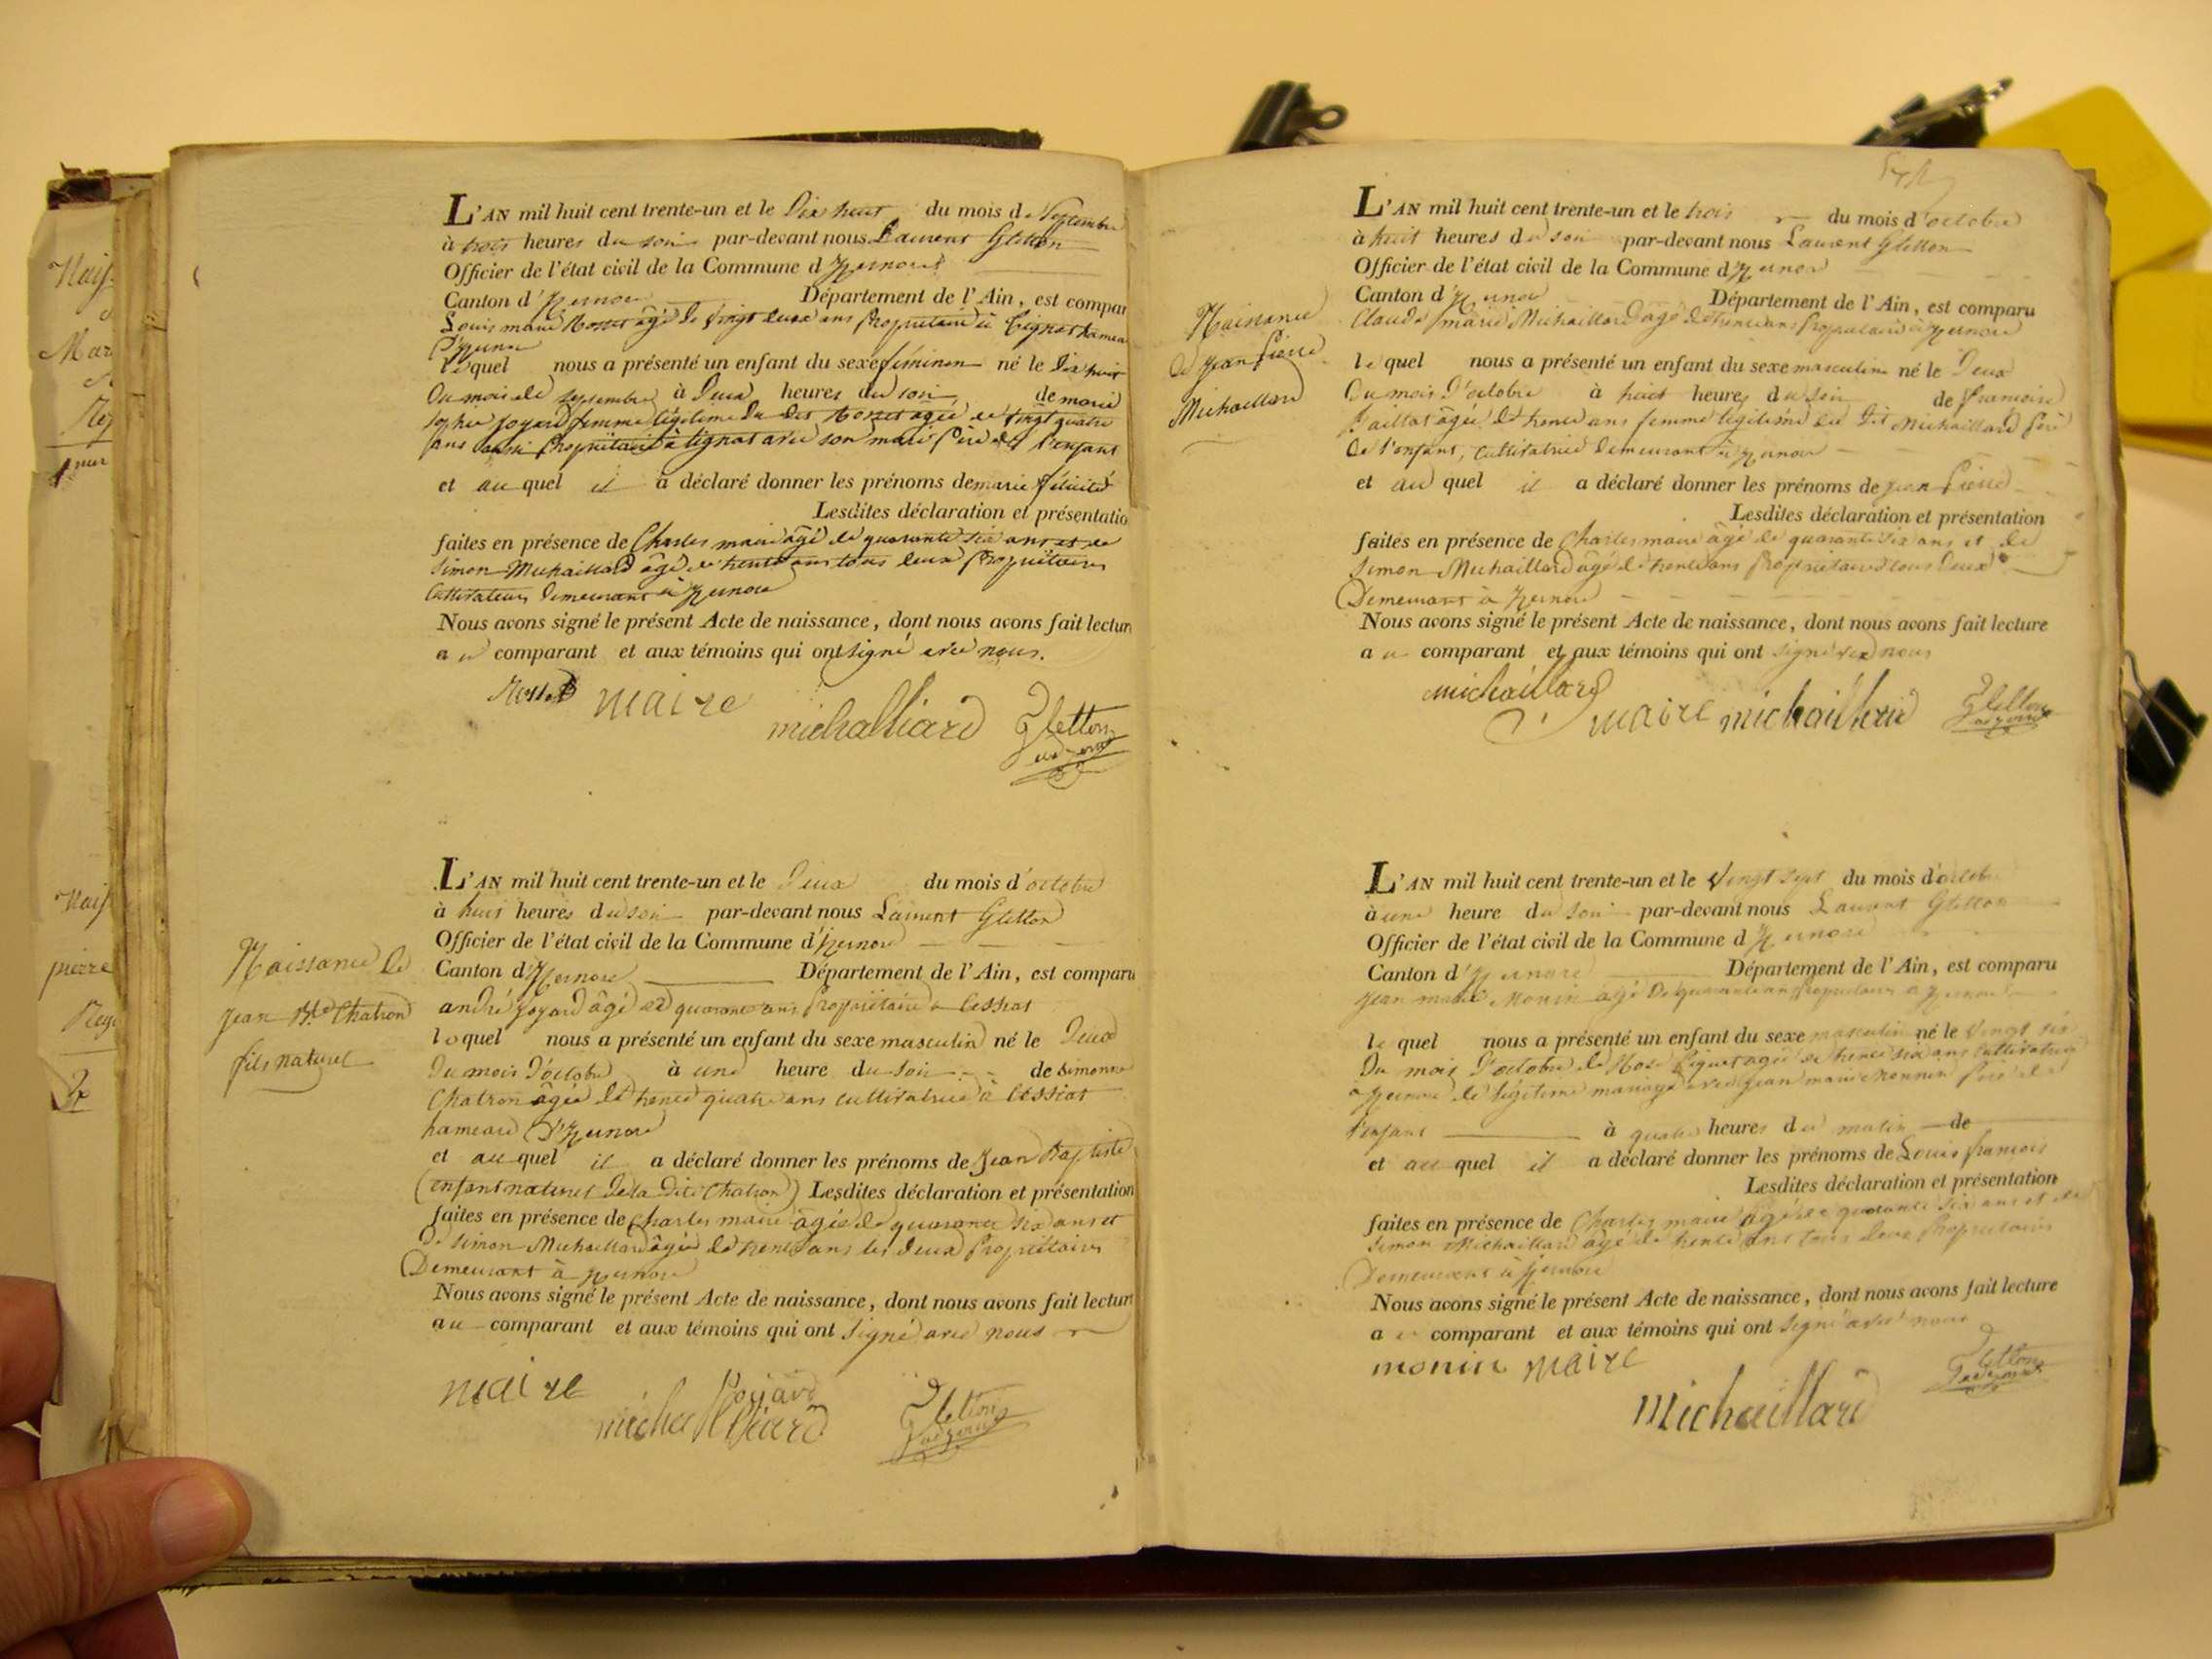 L'AN mil huit cent trente-un et le Dix huit du mois de Septembre
à trois heures du soir par-devant nous Laurent Gletton
Officier de l'état civil de la Commune d'Izernore
Canton d'Izernore Département de l'Ain, est compar
Louis marie Rosset âgé de vingt deux ans Propriétaire à hamea
d'Izernore
lequel nous a présenté un enfant du sexe féminin né le Dix huit
Du mois de septembre à Deux heures du soir de marie
joyard femme légitime du dit Rosset agée de vingt quatre
ans aussi Propriétaire à avec son mari Père de l'enfant
et auquel il a déclaré donner les prénoms de marie félicité
Lesdites déclaration et présentatio
faites en présence de Charles maire âgé de quarante six ans et de
Simon Michaillard âgé de trente ans tous deux Propriétaires
Cultivateurs Demeurant à Izernore
Nous avons signé le présent Acte de naissance, dont nous avons fait lectur
au comparant et aux témoins qui ont signé avec nous.
Rosset maire
michalliard Gletton
adjoint
Naissance de
jean Bte Chatron
fils naturel
L'AN mil huit cent trente-un et le Deux du mois d'octobre
à huit heures du soir par-devant nous Laurent Gletton
Officier de l'état civil de la Commune d'Izernore
Canton d'Izernore Département de l'Ain, est comparu
andré joyard âgé de quarante ans Propriétaire à Cessiat
lequel nous a présenté un enfant du sexe masculin né le Deux
Du mois D'octobre à une heure du soir de Simonne
Chatron âgée de trente quatre ans cultivatrice à Cessiat
hameau D'Izernore
et auquel il a déclaré donner les prénoms de Jean Baptiste
(enfant naturel De la Dite Chatron) Lesdites déclaration et présentation
faites en présence de Charles maire âgé de quarante six ans et
De simon Michaillard âgé de trente ans les deux Propriétaires
Demeurant à Izernore
Nous avons signé le présent Acte de naissance, dont nous avons fait lectur
au comparant et aux témoins qui ont Signé avec nous
maire Joyard
michalliard Gletton
adjoint
Naissance
de jean Pierre
Michaillard
L'AN mil huit cent trente-un et le trois du mois d'octobre
à huit heures du soir par-devant nous Laurent Gletton
Officier de l'état civil de la Commune d'Izernore
Canton d'Izernore Département de l'Ain, est comparu
Claude marie Michaillard âgé de trente ans Propriétaire à Izernore
lequel nous a présenté un enfant du sexe masculin né le Deux
Du mois D'octobre à huit heures du soir de françoise
âgée de trente ans femme légitime du Dit Michaillard Père
De l'enfant, cultivatrice Demeurant à Izernore
et au quel il a déclaré donner les prénoms de jean Pierre
Lesdites déclaration et présentation
faites en présence de Charles maire âgé de quarante six ans et de
Simon Michaillard âgé de trente ans Propriétaires tous Deux
Demeurant à Izernore
Nous avons signé le présent Acte de naissance, dont nous avons fait lecture
au comparant et aux témoins qui ont signé avec nous
michaillard
maire michaillard Gletton
adjoint
L'AN mil huit cent trente-un et le Vingt Sept du mois d'octobre
à une heure du soir par-devant nous Laurent Gletton
Officier de l'état civil de la Commune d'Izernore
Canton d'Izernore Département de l'Ain, est comparu
jean marie Monin âgé De quarante ans Propriétaire à Izernore
lequel nous a présenté un enfant du sexe masculin né le Vingt six
Du mois D'octobre de Rose agée de trente six ans Cultivatrice
à Izernore de légitime mariage avec jean marie monnin Père de
l'enfant à quatre heures du matin de
et au quel il a déclaré donner les prénoms de Louis françois
Lesdites déclaration et présentation
faites en présence de Charles maire âgé de quarante six ans et de
Simon Michaillard âgé de trente ans tous deux Propriétaires
Demeurant à Izernore
Nous avons signé le présent Acte de naissance, dont nous avons fait lecture
au comparant et aux témoins qui ont signé avec nous
monin maire
Michaillard Gletton
adjoint